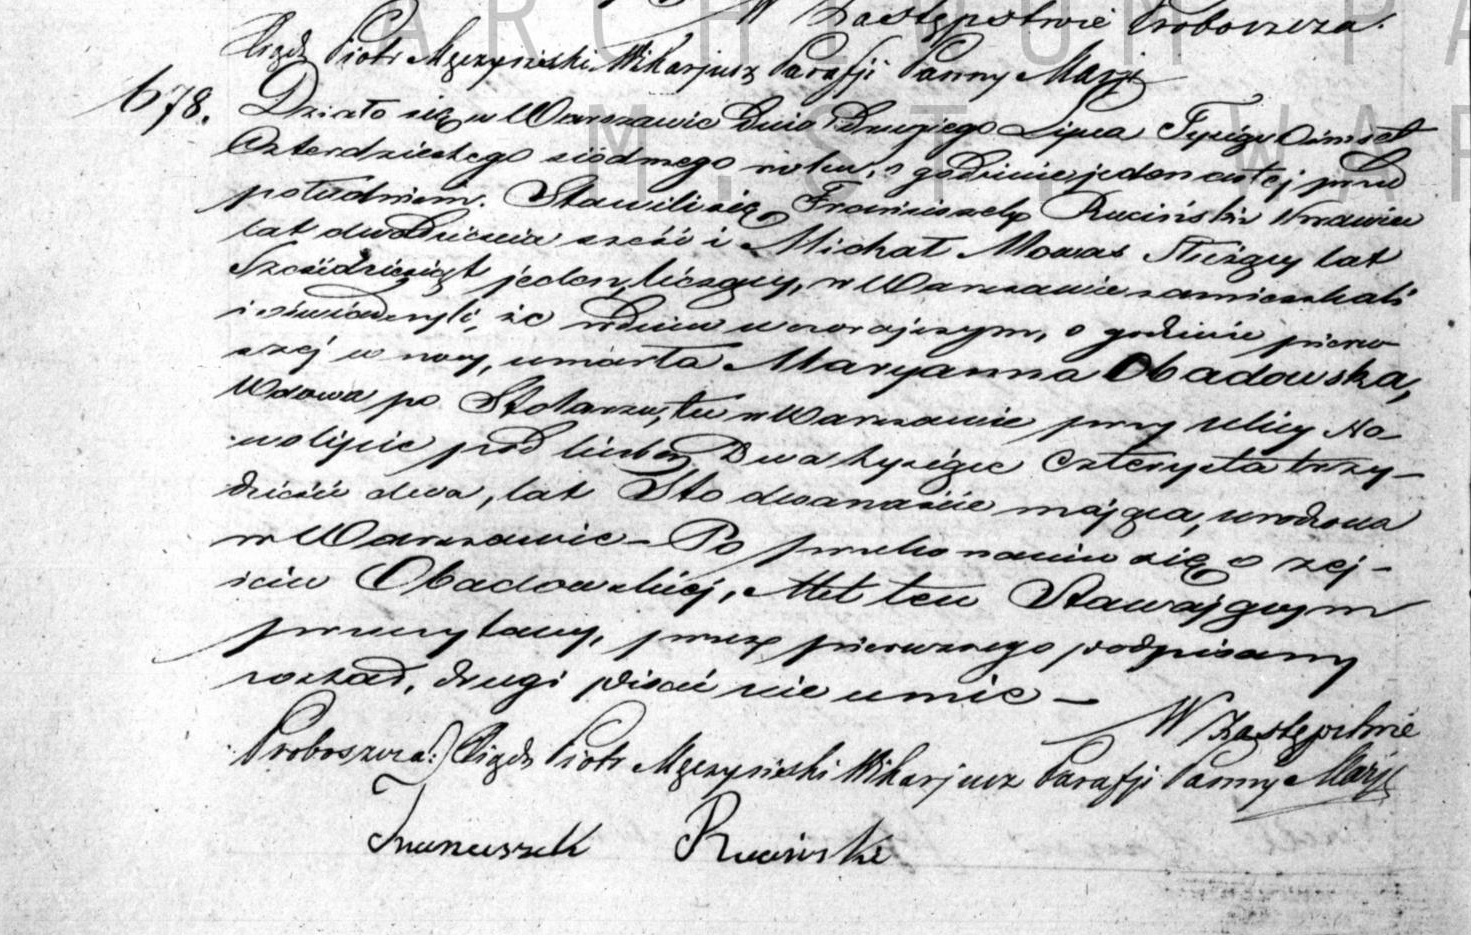 W Zastępstwie Proboszcza.
Xiądz Piotr Mężczyński Wikarjusz Parafji Panny Marji
678. Działo się w Warszawie Dnia Drugiego Lipca Tysiąc Ośmset
Czterdziestego siódmego roku, o godzinie jedenastej przed
południem. Stawili się Franciszek Ruciński Krawiec
lat dwadzieścia sześć i Michał Mowas Służący lat
Sześćdziesiąt jeden liczący, w Warszawie zamieszkali
i oświadczyli, że w dniu wczorajszym, o godzinie pierw-
szej w nocy, umarła Maryanna Obadowska,
Wdowa po Stolarzu, tu w Warszawie przy ulicy No-
wolipie pod liczbą Dwa tysiące Czterysta trzy-
dzieści dwa, lat Sto dwanaście mająca, urodzona
w Warszawie – Po przekonaniu się o zej-
ściu Obadowskiej, Akt ten Stawającym
przeczytany, przez pierwszego podpisany
został, drugi pisać nie umie –
W Zastępstwie
Proboszcza: Xiądz Piotr Mężczyński Wikarjusz Parafji Panny Marji
Franciszek Ruciński